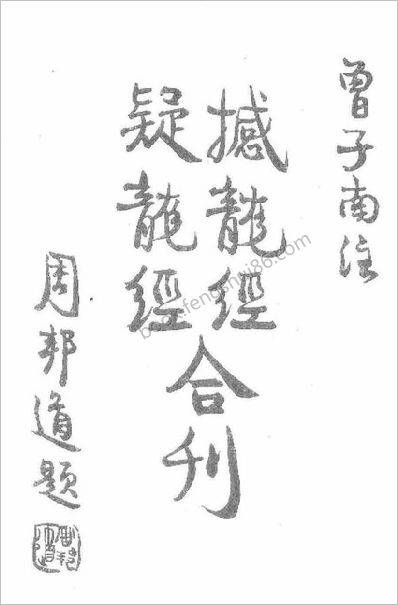 曾子南注
撼龍經
疑龍經
合刊
周邦道題
周邦道